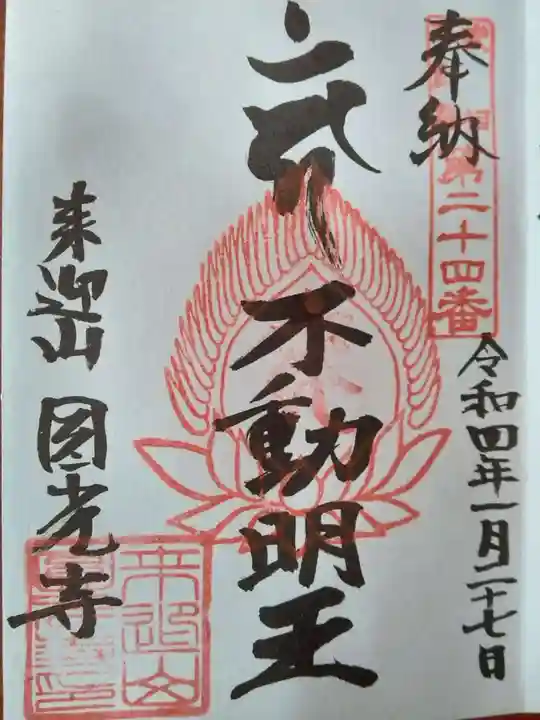 奉納
第二十四番
令和四年一月二十七日
不動明王
来迎山 圓光寺
来迎山